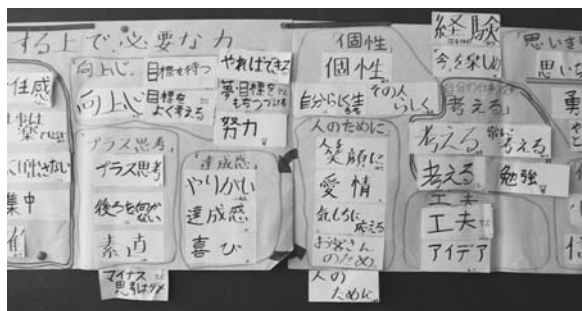 する上で、必要な力
任感
集中
「向上心」
目標を持つ
向上心
目標を
よく考える
やればできる
夢・目標を
もちつづける
努力
「プラス思考」
プラス思考
後ろを向か
ない
素直
マイナス
思考はダメ
「達成感」
やりがい
達成感
喜び
「個性」
個性
自分らしく
その人
らしく
人のために
笑顔に
愛情
気もちに
応える
お客さん
のため
人の
ために
経験
今を楽しめ
考える」
考える
常に
考える
考える
勉強
工夫
工夫
アイデア
思いを
思いや
勇